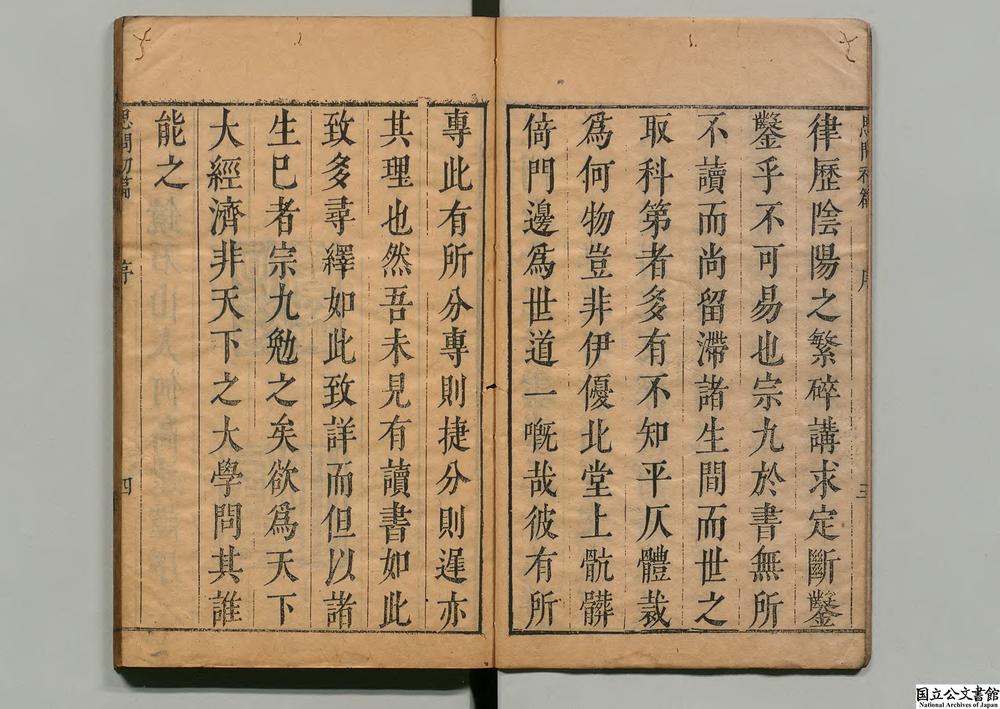 律歷陰陽之繁碎講求定斷鑿
鑿乎不可易也宗九於書無所
不讀而尚留滯諸生間而世之
取科第者多有不知平仄體裁
爲何物豈非伊優北堂上骯髒
倚門邊爲世道一嘅哉彼有所
專此有所分專則捷分則遲亦
其理也然吾未見有讀書如此
致多尋繹如此致詳而但以諸
生已者宗九勉之矣欲爲天下
大經濟非天下之大學問其誰
能之
序
三
思問初篇
序
四
国立公文書館
National Archives of Japan